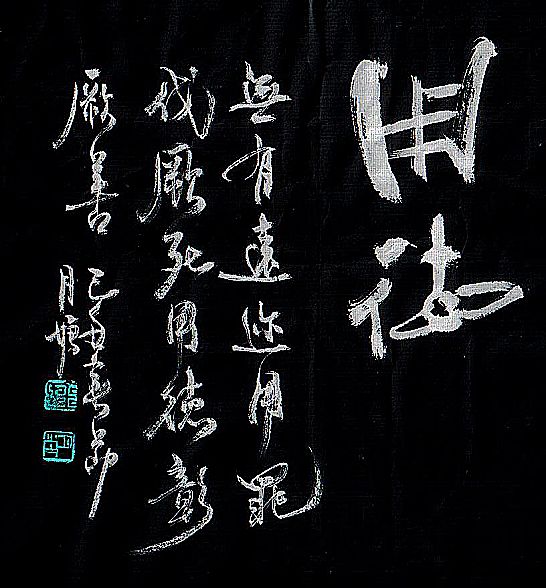 用德
無有遠迩用罪
伐厥死用德彰
厥善 春節
月塘